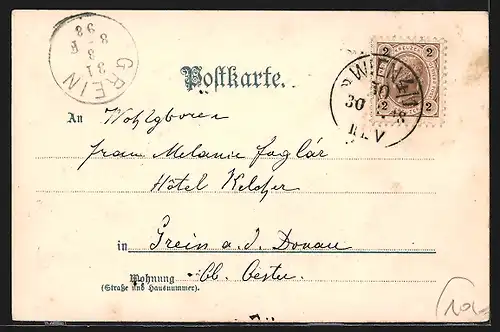 GREIN
31
8
8-F
98
Postkarte.
WIEN 4/1
30
2 2
2 2
An Wohlgboren
Frau Melanie Foglár
Hôtel Kelcher
in Grein a. d. Donau
Wohnung Ob. Oestr.
(Straße und Hausnummer).